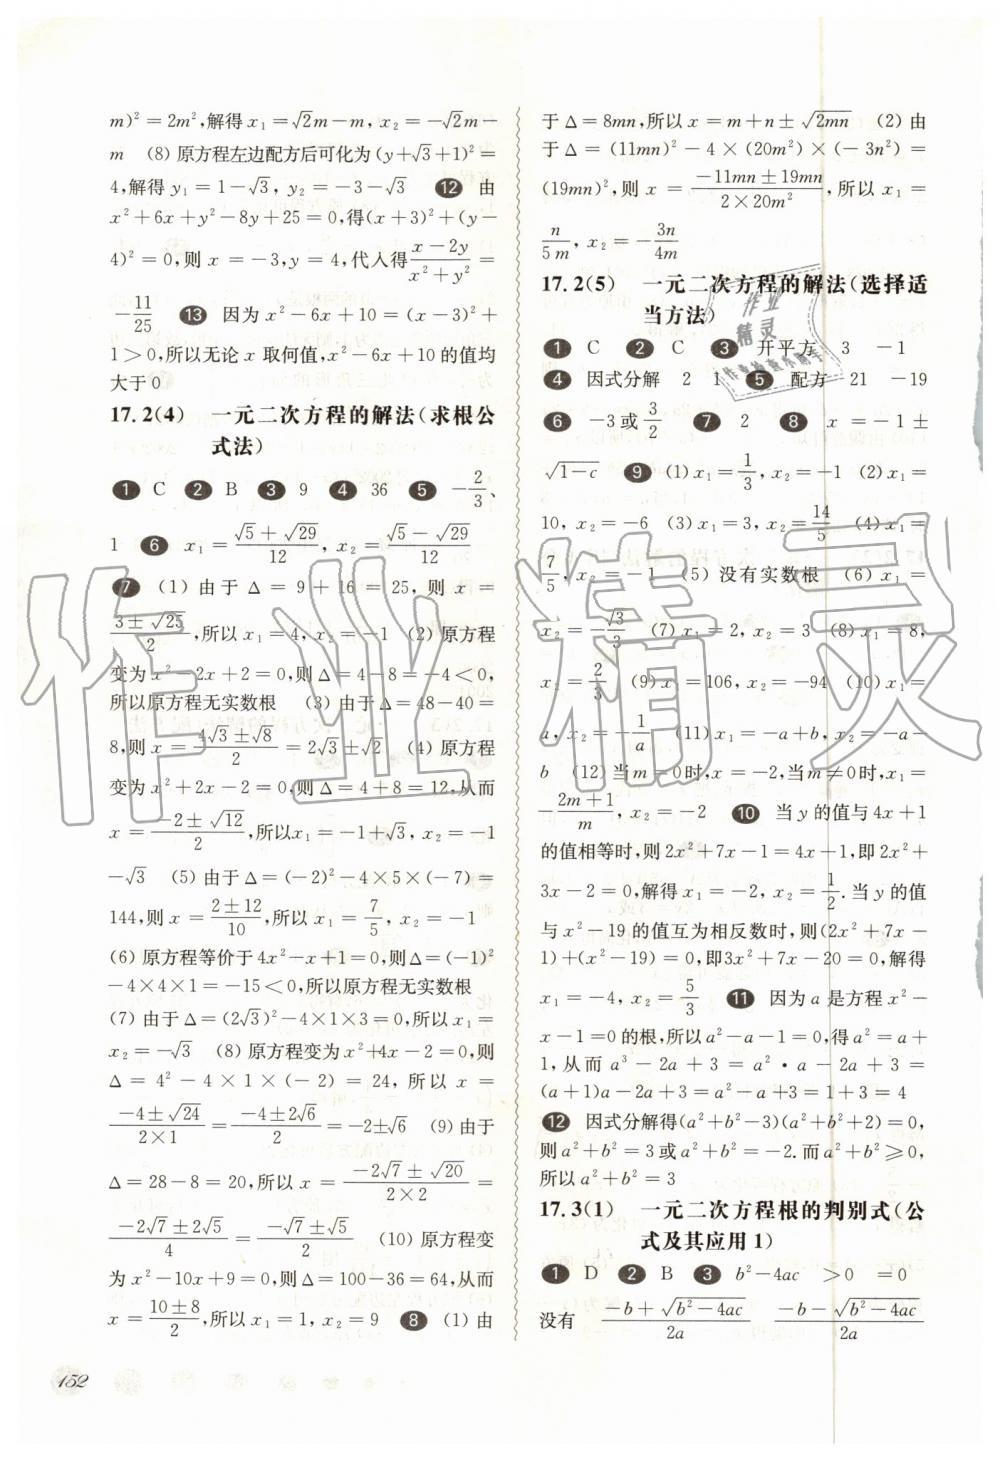 m)² = 2m², 解得 x₁ = √2m − m, x₂ = −√2m −
m　(8) 原方程左边配方后可化为 (y+√3+1)² =
4, 解得 y₁ = 1−√3, y₂ = −3−√3　⑫　由
x²+6x+y²−8y+25=0, 得(x+3)²+(y−
4)²=0, 则 x=−3, y=4, 代入得 (x−2y)/(x²+y²) =
−11/25　⑬　因为 x²−6x+10=(x−3)²+
1>0, 所以无论 x 取何值, x²−6x+10 的值均
大于 0
17.2(4)　一元二次方程的解法(求根公
式法)
❶ C　❷ B　❸ 9　❹ 36　❺ −2/3、
1　❻ x₁ = (√5+√29)/12, x₂ = (√5−√29)/12
❼ (1) 由于 Δ = 9 + 16 = 25, 则 x =
(3±√25)/2, 所以 x₁=4, x₂=−1　(2) 原方程
变为 x²−2x+2=0, 则 Δ=4−8=−4<0,
所以原方程无实数根　(3) 由于 Δ=48−40=
8, 则 x = (4√3±√8)/2 = 2√3±√2　(4) 原方程
变为 x²+2x−2=0, 则 Δ=4+8=12, 从而
x = (−2±√12)/2, 所以 x₁=−1+√3, x₂=−1
−√3　(5) 由于 Δ=(−2)²−4×5×(−7)=
144, 则 x = (2±12)/10, 所以 x₁ = 7/5, x₂ = −1
(6) 原方程等价于 4x²−x+1=0, 则 Δ=(−1)²
−4×4×1=−15<0, 所以原方程无实数根
(7) 由于 Δ=(2√3)²−4×1×3=0, 所以 x₁=
x₂=−√3　(8) 原方程变为 x²+4x−2=0, 则
Δ = 4² − 4 × 1 × (−2) = 24, 所以 x =
(−4±√24)/(2×1) = (−4±2√6)/2 = −2±√6　(9) 由于
Δ = 28 − 8 = 20, 所以 x = (−2√7±√20)/(2×2) =
(−2√7±2√5)/4 = (−√7±√5)/2　(10) 原方程变
为 x²−10x+9=0, 则 Δ=100−36=64, 从而
x = (10±8)/2, 所以 x₁=1, x₂=9　❽ (1) 由
152
于 Δ=8mn, 所以 x = m+n±√2mn　(2) 由
于 Δ = (11mn)² − 4 × (20m²) × (−3n²) =
(19mn)², 则 x = (−11mn±19mn)/(2×20m²), 所以 x₁ =
n/5m, x₂ = −3n/4m
17.2(5)　一元二次方程的解法(选择适
当方法)
❶ C　❷ C　❸ 开平方　3　−1
❹ 因式分解　2　1　❺ 配方　21　−19
❻ −3或3/2　❼ 2　❽ x=−1±
√1−c　❾ (1) x₁ = 1/3, x₂ = −1　(2) x₁ =
10, x₂=−6　(3) x₁=3, x₂=14/5　(4) x₁=
7/5, x₂ = −1　(5) 没有实数根　(6) x₁ =
x₂ = √3/3　(7) x₁=2, x₂=3　(8) x₁=8,
x₂=2/3　(9) x₁=106, x₂=−94　(10) x₁=
a, x₂=−1/a　(11) x₁=−a+b, x₂=−a−
b　(12) 当 m=0时, x=−2, 当 m≠0时, x₁=
−(2m+1)/m, x₂ = −2　❿ 当 y 的值与 4x+1
的值相等时, 则 2x²+7x−1=4x−1, 即 2x²+
3x−2=0, 解得 x₁=−2, x₂=1/2. 当 y 的值
与 x²−19 的值互为相反数时, 则(2x²+7x−
1)+(x²−19)=0, 即3x²+7x−20=0, 解得
x₁=−4, x₂=5/3　⓫ 因为 a 是方程 x²−
x−1=0 的根, 所以 a²−a−1=0, 得 a²=a+
1, 从而 a³−2a+3=a²·a−2a+3=
(a+1)a−2a+3=a²−a+3=1+3=4
⓬ 因式分解得(a²+b²−3)(a²+b²+2)=0,
则 a²+b²=3 或 a²+b²=−2. 而 a²+b²⩾0,
所以 a²+b²=3
17.3(1)　一元二次方程根的判别式(公
式及其应用 1)
❶ D　❷ B　❸ b²−4ac　>0　=0
没有　(−b+√b²−4ac)/2a　(−b−√b²−4ac)/2a
作业精灵
作业
精灵